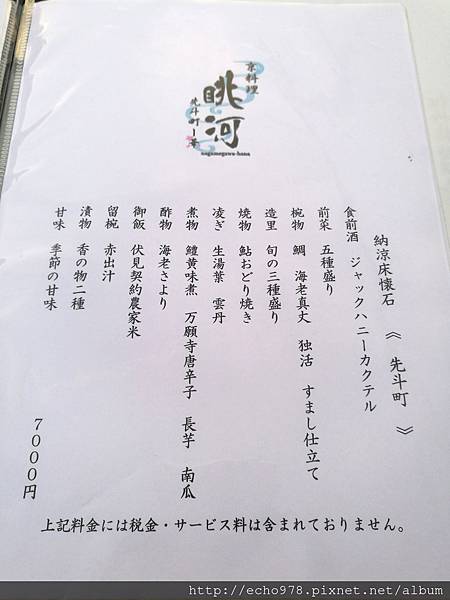 京料理
眺河
先斗町一番
nagamegawa-hana
納涼床懐石 《 先斗町 》
食前酒 ジャックハニーカクテル
前菜 五種盛り
椀物 鯛 海老真丈 独活 すまし仕立て
造里 旬の三種盛り
焼物 鮎おどり焼き
凌ぎ 生湯葉 雲丹
煮物 鱧黄味煮 万願寺唐辛子 長芋 南瓜
酢物 海老さより
御飯 伏見契約農家米
留椀 赤出汁
漬物 香の物二種
甘味 季節の甘味
7000円
上記料金には税金・サービス料は含まれておりません。
http://echo978.pixnet.net/album